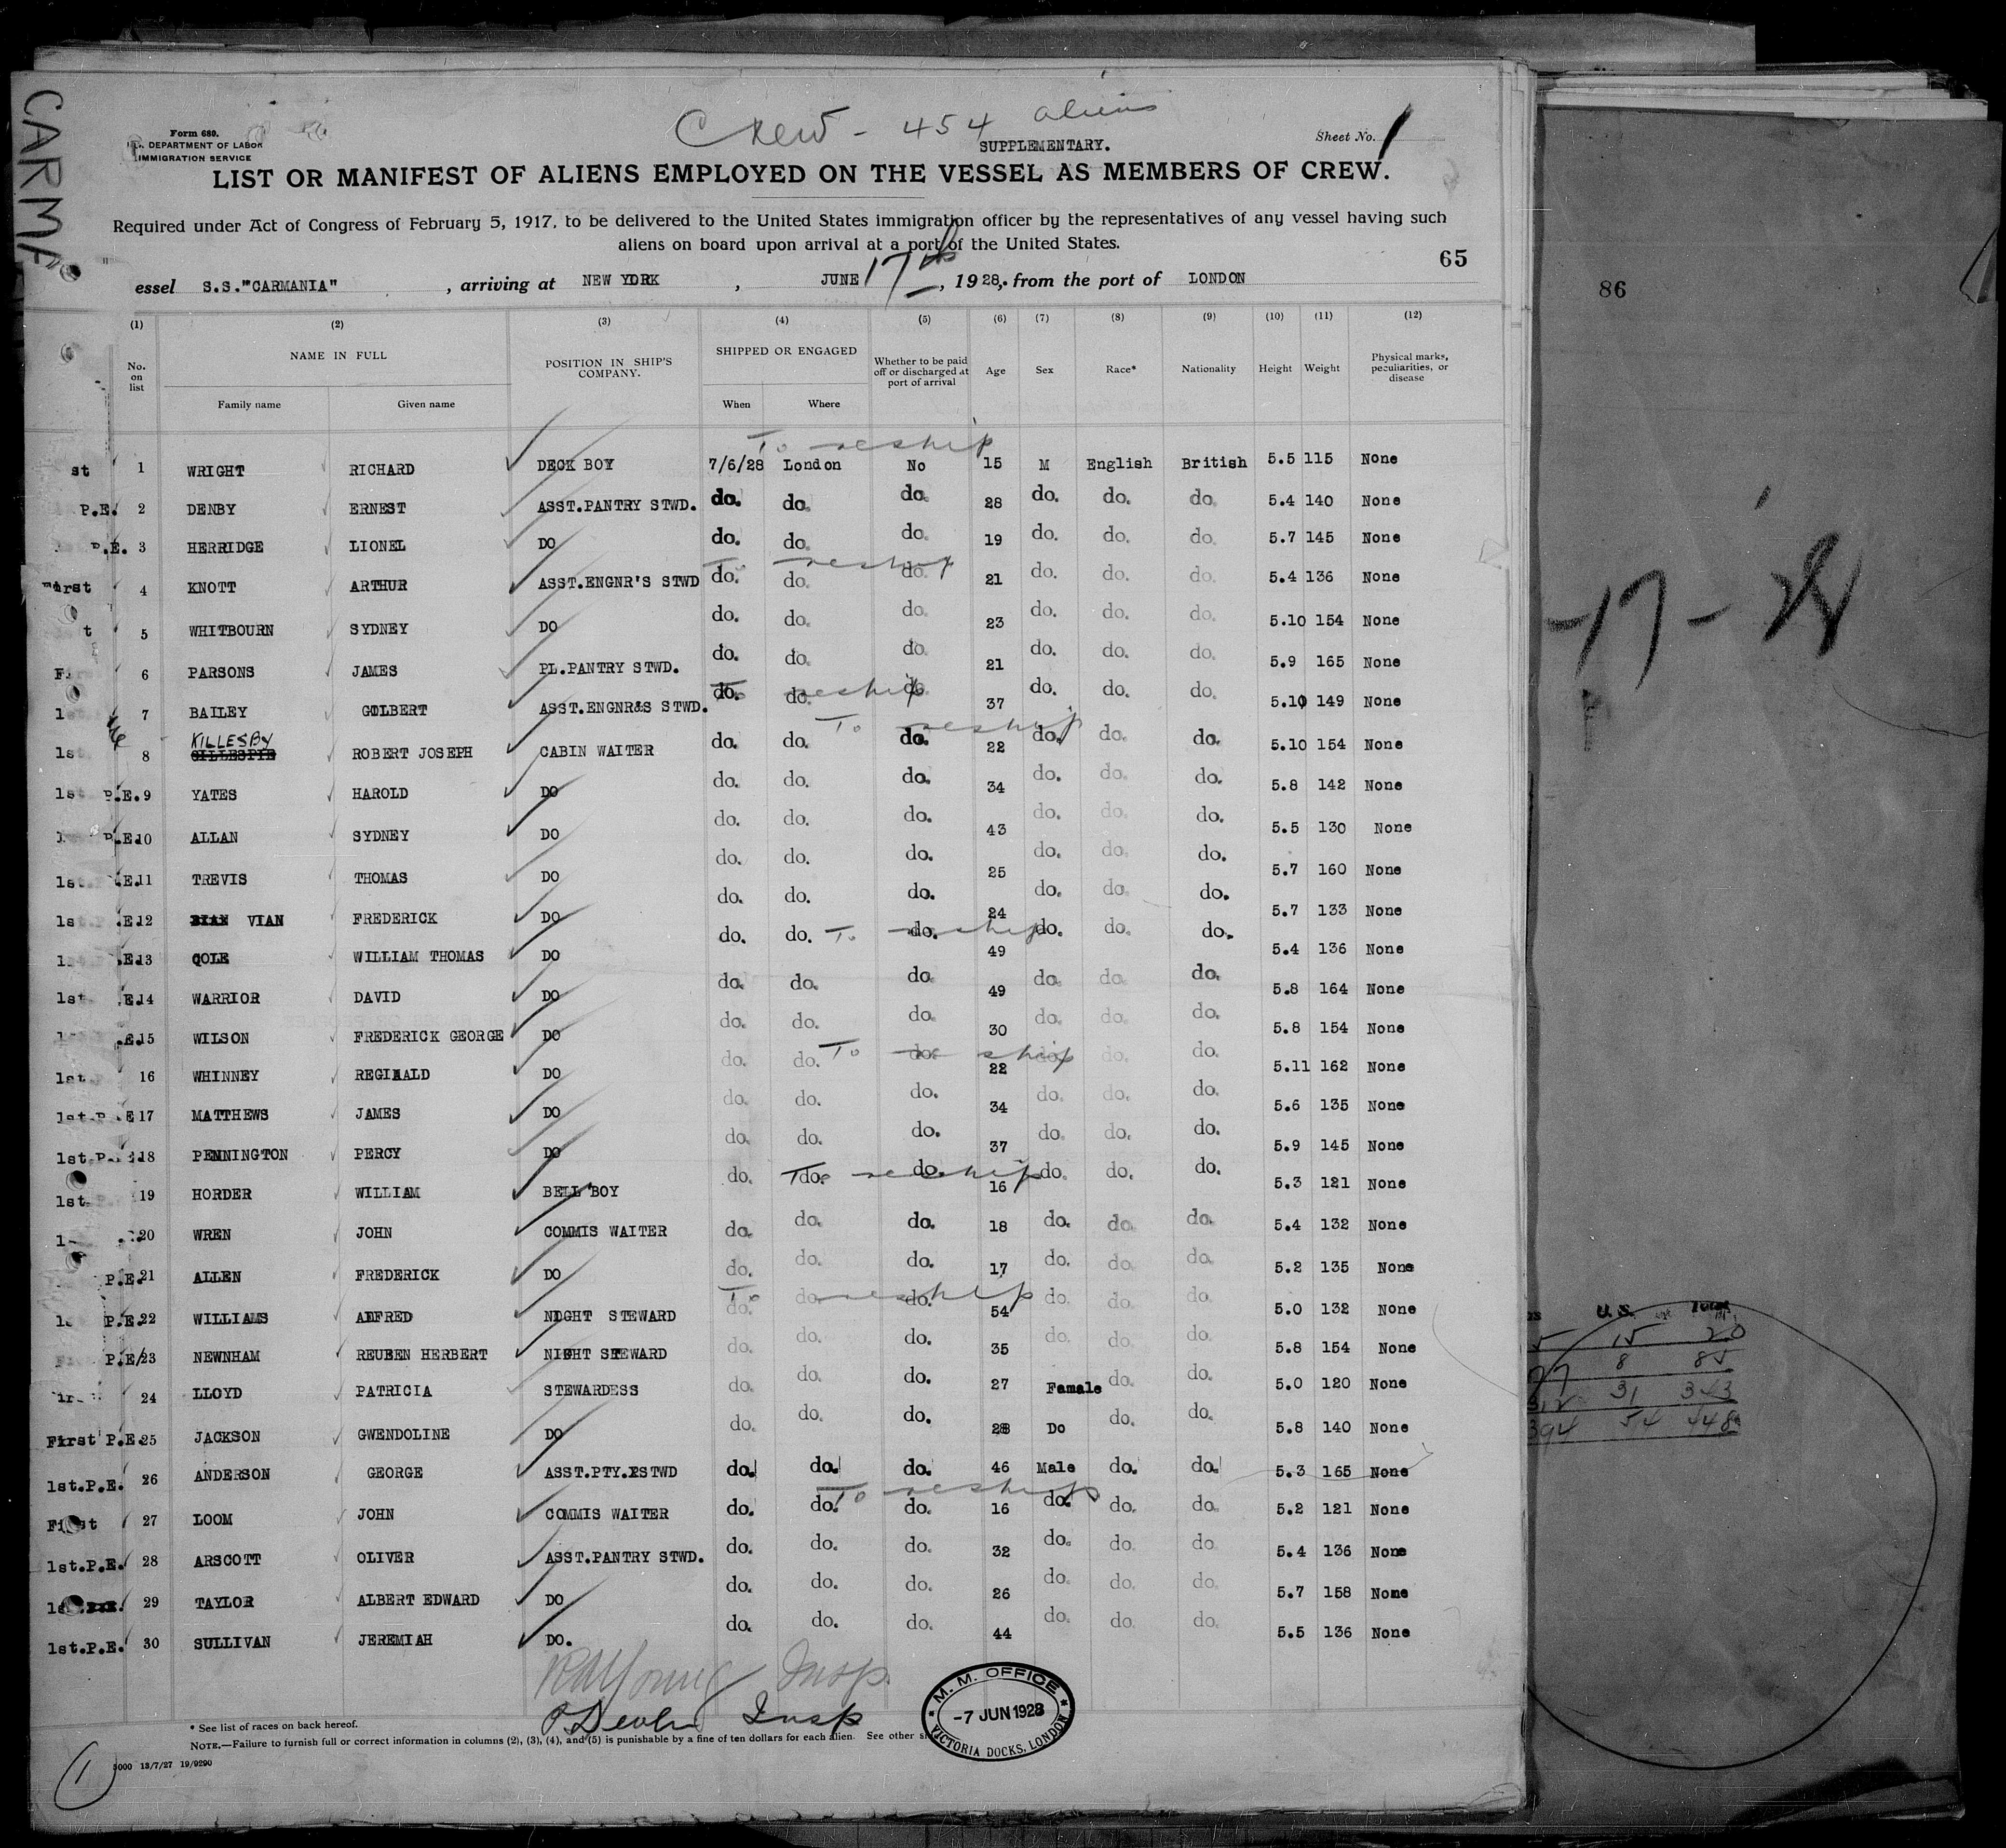 CARMA
Crew - 454 aliens
Form 689.
U.S. DEPARTMENT OF LABOR
IMMIGRATION SERVICE
SUPPLEMENTARY.
Sheet No. 1
LIST OR MANIFEST OF ALIENS EMPLOYED ON THE VESSEL AS MEMBERS OF CREW.
Required under Act of Congress of February 5, 1917, to be delivered to the United States immigration officer by the representatives of any vessel having such
aliens on board upon arrival at a port of the United States.
65
86
essel S.S."CARMANIA" , arriving at NEW YORK , JUNE 17th, 1928, from the port of LONDON
(1) (2) (3) (4) (5) (6) (7) (8) (9) (10) (11) (12)
No. on list NAME IN FULL POSITION IN SHIP'S COMPANY. SHIPPED OR ENGAGED Whether to be paid off or discharged at port of arrival Age Sex Race* Nationality Height Weight Physical marks, peculiarities, or disease
Family name Given name When Where
To reship
st 1 WRIGHT RICHARD DECK BOY 7/6/28 London No 15 M English British 5.5 115 None
P.E. 2 DENBY ERNEST ASST.PANTRY STWD. do. do. do. 28 do. do. do. 5.4 140 None
P.E. 3 HERRIDGE LIONEL DO do. do. do. 19 do. do. do. 5.7 145 None
To reship
First 4 KNOTT ARTHUR ASST.ENGNR'S STWD do. do. do. 21 do. do. do. 5.4 136 None
t 5 WHITBOURN SYDNEY DO do. do. do. 23 do. do. do. 5.10 154 None
Fi 6 PARSONS JAMES PL.PANTRY STWD. do. do. do. 21 do. do. do. 5.9 165 None
To reship
1st 7 BAILEY GILBERT ASST.ENGNR&S STWD. do. do. do. 37 do. do. do. 5.10 149 None
To reship
KILLESBY
1st 8 GILLESPIE ROBERT JOSEPH CABIN WAITER do. do. do. 22 do. do. do. 5.10 154 None
1st P.E. 9 YATES HAROLD DO do. do. do. 34 do. do. do. 5.8 142 None
P.E. 10 ALLAN SYDNEY DO do. do. do. 43 do. do. do. 5.5 130 None
1st. .E. 11 TREVIS THOMAS DO do. do. do. 25 do. do. do. 5.7 160 None
1st .E. 12 VIAN FREDERICK DO do. do. do. 24 do. do. do. 5.7 133 None
To reship
.E. 13 COLE WILLIAM THOMAS DO do. do. do. 49 do. do. do. 5.4 136 None
1st .E. 14 WARRIOR DAVID DO do. do. do. 49 do. do. do. 5.8 164 None
.E. 15 WILSON FREDERICK GEORGE DO do. do. do. 30 do. do. do. 5.8 154 None
To reship
1st. 16 WHINNEY REGINALD DO do. do. do. 22 do. do. do. 5.11 162 None
1st.P. E 17 MATTHEWS JAMES DO do. do. do. 34 do. do. do. 5.6 135 None
1st.P. 18 PENNINGTON PERCY DO do. do. do. 37 do. do. do. 5.9 145 None
To reship
1st. 19 HORDER WILLIAM BELL BOY do. do. do. 16 do. do. do. 5.3 121 None
20 WREN JOHN COMMIS WAITER do. do. do. 18 do. do. do. 5.4 132 None
P.E. 21 ALLEN FREDERICK DO do. do. do. 17 do. do. do. 5.2 135 None
To reship
P.E. 22 WILLIAMS ALFRED NIGHT STEWARD do. do. do. 54 do. do. do. 5.0 132 None
P.E/ 23 NEWNHAM REUBEN HERBERT NIGHT STEWARD do. do. do. 35 do. do. do. 5.8 154 None
24 LLOYD PATRICIA STEWARDESS do. do. do. 27 Female do. do. 5.0 120 None
First P.E. 25 JACKSON GWENDOLINE DO do. do. do. 28 Do do. do. 5.8 140 None
1st.P.E. 26 ANDERSON GEORGE ASST.PTY.STWD do. do. do. 46 Male do. do. 5.3 165 None
To reship
First 27 LOOM JOHN COMMIS WAITER do. do. do. 16 do. do. do. 5.2 121 None
1st.P.E. 28 ARSCOTT OLIVER ASST.PANTRY STWD. do. do. do. 32 do. do. do. 5.4 136 None
29 TAYLOR ALBERT EDWARD DO do. do. do. 26 do. do. do. 5.7 158 None
1st.P.E. 30 SULLIVAN JEREMIAH DO. do. do. do. 44 do. do. do. 5.5 136 None
Young Insp.
Devlin Insp
M. M. OFFICE
-7 JUN 1928
VICTORIA DOCKS, LONDON
* See list of races on back hereof.
NOTE.—Failure to furnish full or correct information in columns (2), (3), (4), and (5) is punishable by a fine of ten dollars for each alien. See other
5000 13/7/27 19/9290
1
-17-28
U.S. Total
5 15 20
77 8 85
312 31 343
394 54 448